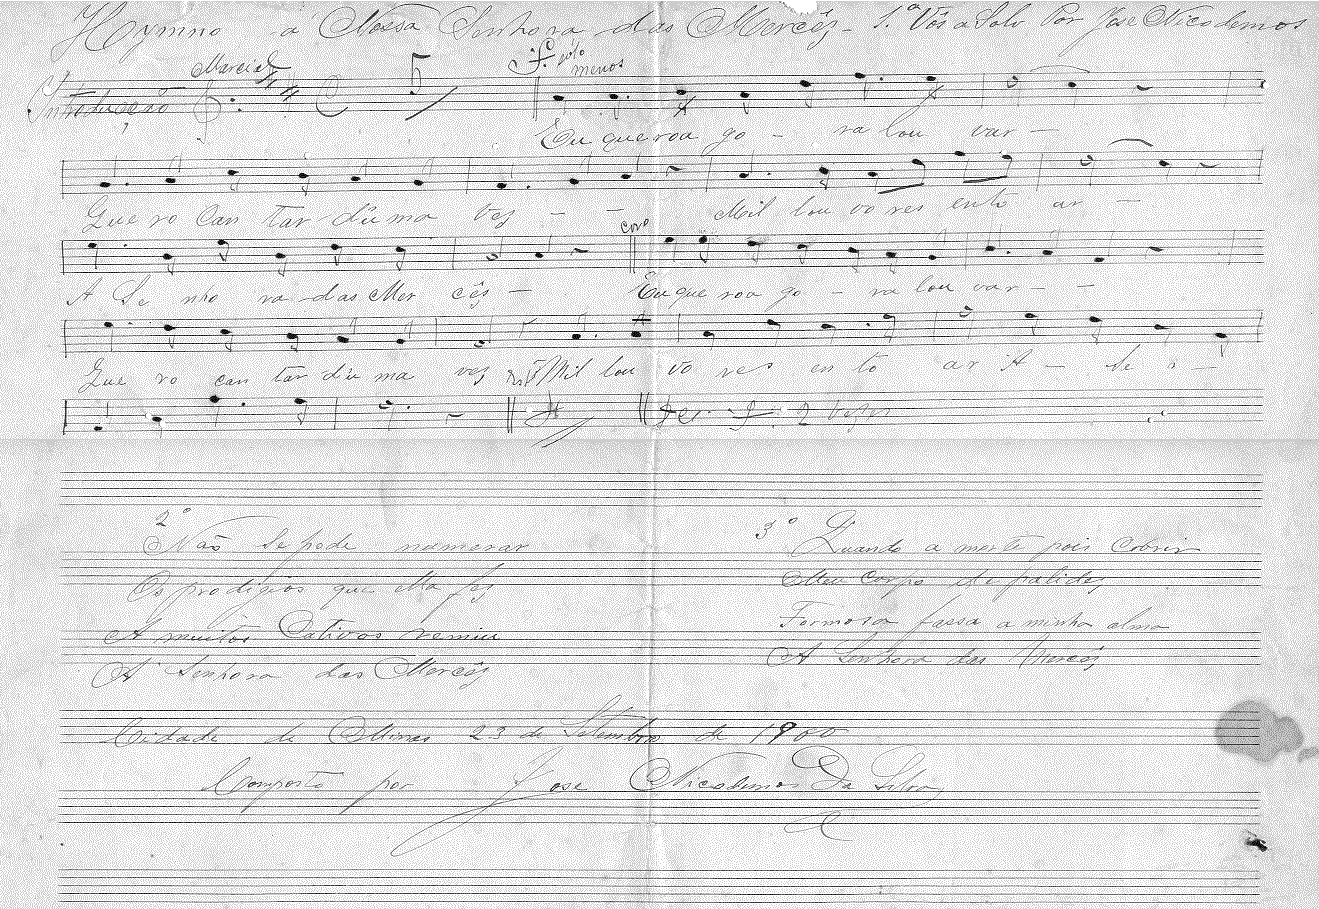 Hymno a Nossa Senhora das Mercês - 1.ª Vós a Solo Por Jose Nicodemos
Marcial 5 solo menos
Introducção
Eu que roa go - ra lou var -
Que ro Can tar d'u ma Vez - - Mil lou vo res ento ar -
coro
A Se nho ra das Mer cês - Eu que roa go - ra lou var - -
Que ro can tar d'u ma vez Mil lou vo res en to ar A - Se n -
2 Vezes
2º
Não se pode numerar
Os prodigios que Ella fez
A muitos Cativos remiu
A Senhora das Mercês
3º Quando a morte pois cobrir
Meu corpo de palidez
Formosa fassa a minha alma
A Senhora das Mercês
Cidade de Minas 23 de Setembro de 1900
Composto por Jose Nicodemos Da Silva